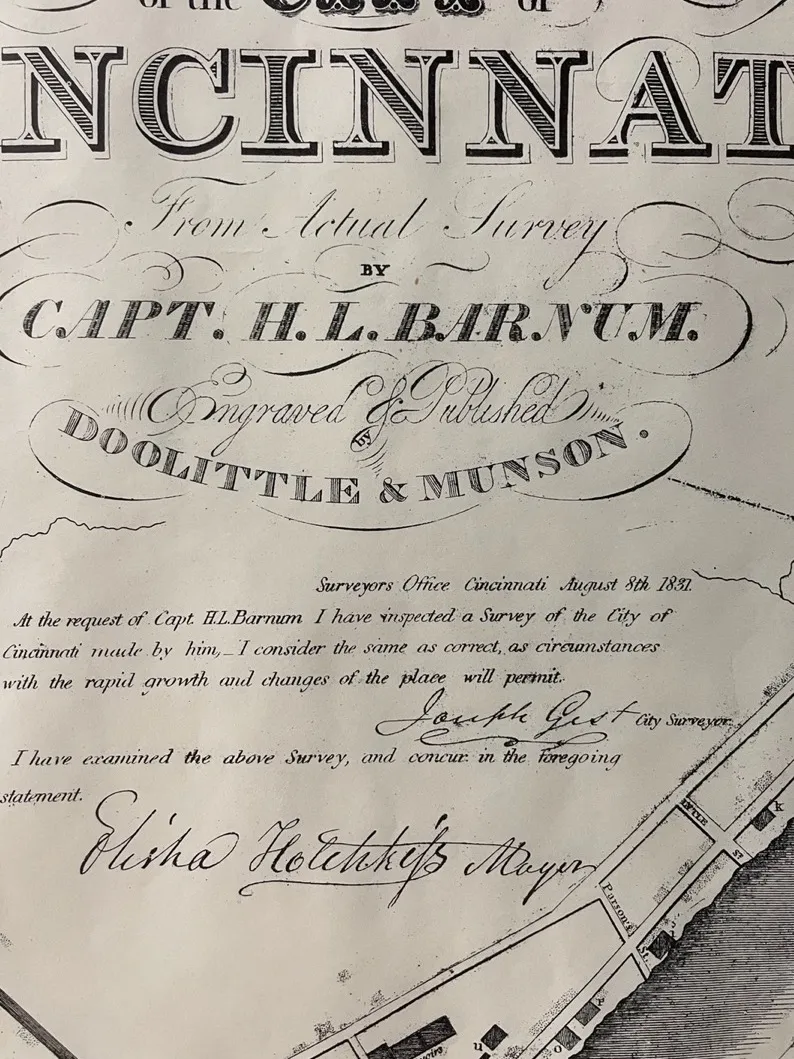 of the CITY of
NCINNAT
From Actual Survey
BY
CAPT. H. L. BARNUM.
Engraved & Published
by
DOOLITTLE & MUNSON.
Surveyors Office Cincinnati August 8th 1831.
At the request of Capt. H.L.Barnum I have inspected a Survey of the City of
Cincinnati made by him,_I consider the same as correct, as circumstances
with the rapid growth and changes of the place will permit.
Joseph Gest City Surveyor.
I have examined the above Survey, and concur in the foregoing
statement.
Elisha Hotchkiss Mayor
LYTLE
ST
k
Parson's
St.
r
u
o